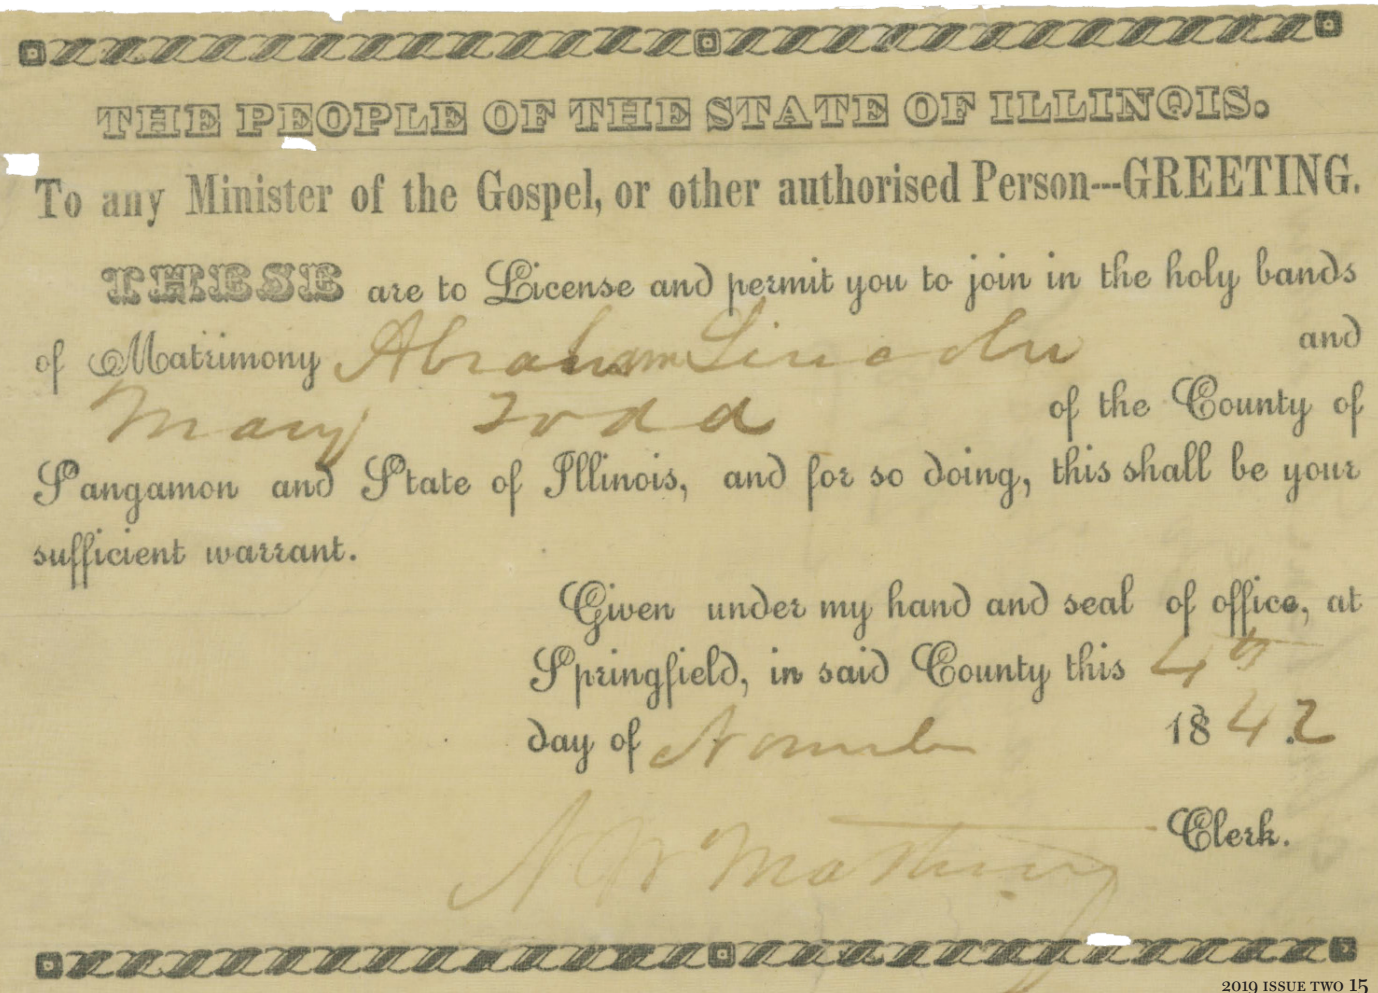 THE PEOPLE OF THE STATE OF ILLINOIS.
To any Minister of the Gospel, or other authorised Person---GREETING.
THESE are to License and permit you to join in the holy bands
of Matrimony Abraham Lincoln and
Mary Todd of the County of
Sangamon and State of Illinois, and for so doing, this shall be your
sufficient warrant.
Given under my hand and seal of office, at
Springfield, in said County this 4th
day of November 1842
N W Matheny Clerk.
2019 ISSUE TWO 15